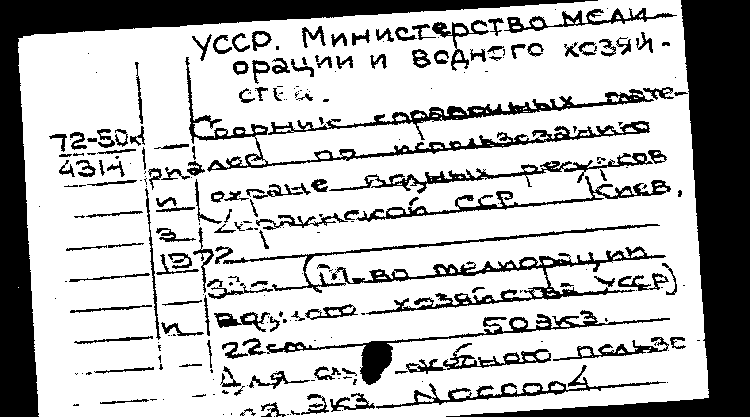 УССР. Министерство мели-
орации и водного хозяй-
ства.
72-50к
4314
Сборник справочных мате-
риалов по использованию
и охране водных ресурсов
Украинской ССР. Киев,
1972.
33с. (М-во мелиорации
и водного хозяйства УССР)
22см. 50экз.
Для служебного пользо
Экз. N000004.